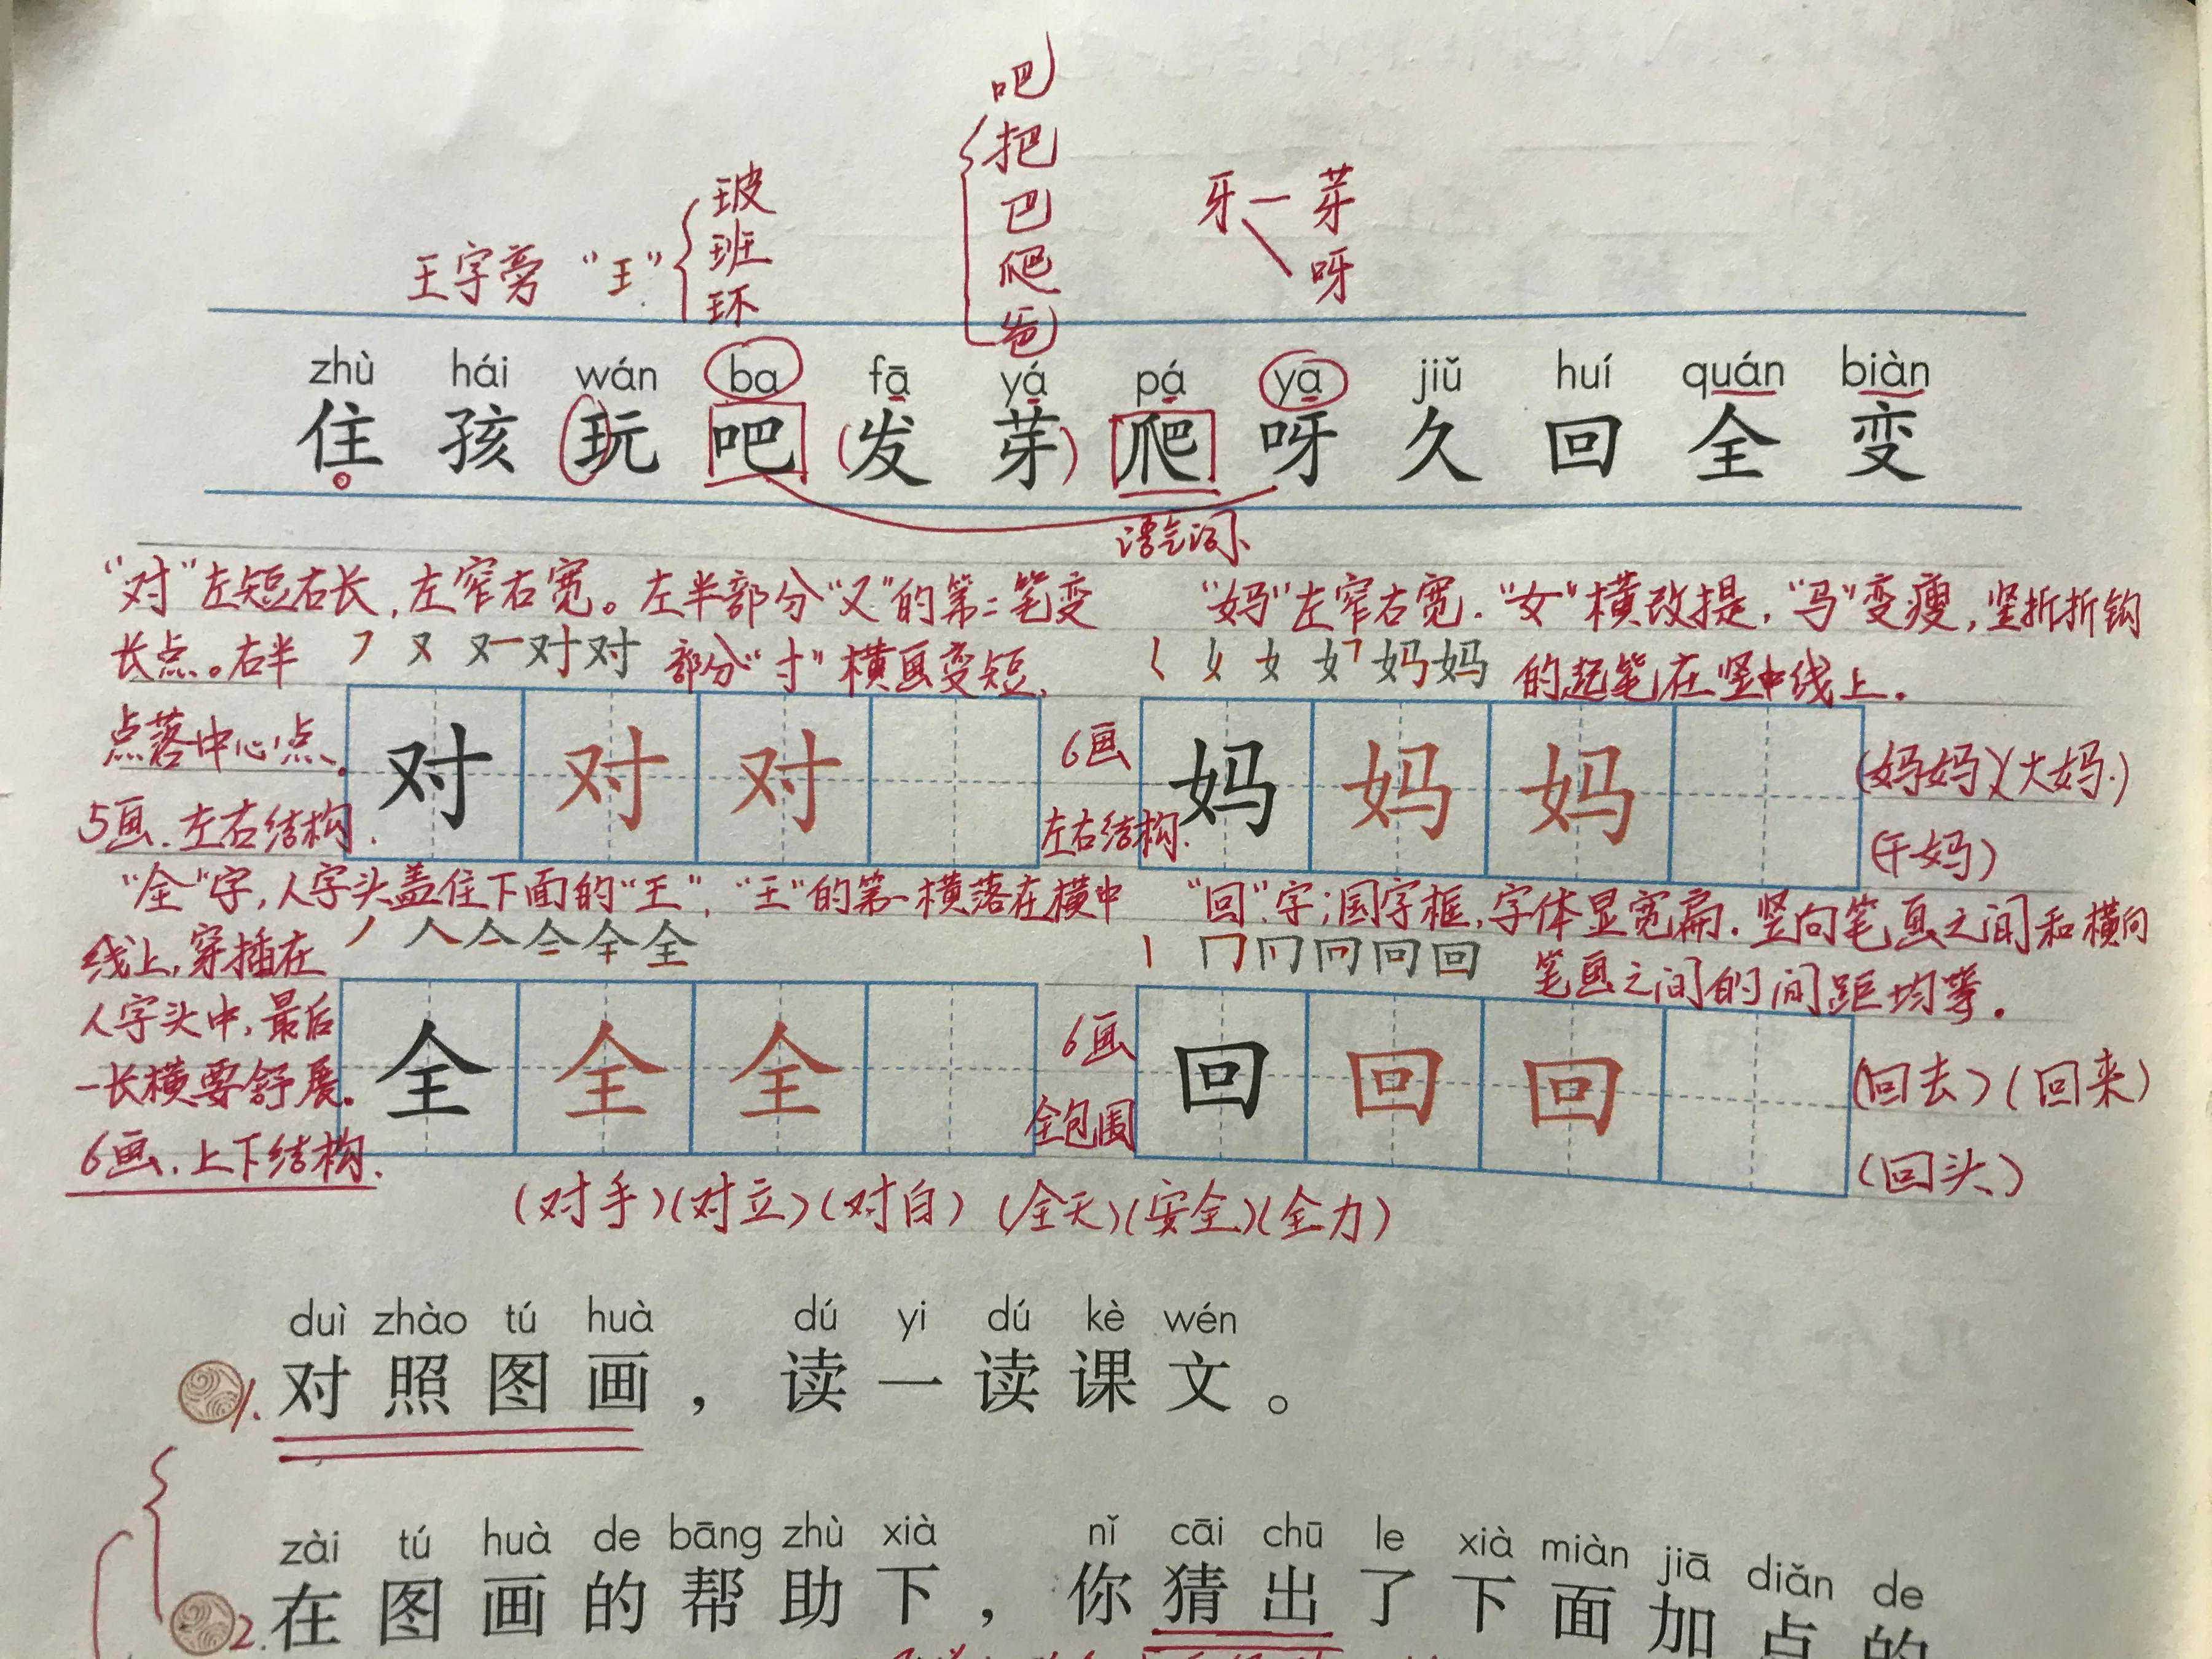 吧
把
巴
爬
爸
玻
班
环
王字旁 “王”
牙 — 芽
呀
zhù hái wán ba fā yá pá ya jiǔ huí quán biàn
住 孩 玩 吧 (发 芽) 爬 呀 久 回 全 变
语气词
“对”左短右长,左窄右宽。左半部分“又”的第二笔变
长点。右半 部分“寸”横画变短,
点落中心点、
5画.左右结构.
“妈”左窄右宽.“女”横改提,“马”变瘦,竖折折钩
的起笔在竖中线上.
对 对 对
6画
左右结构.
妈 妈 妈
(妈妈)(大妈.)
(干妈)
“全”字,人字头盖住下面的“王”,“王”的第一横落在横中
线上,穿插在
人字头中,最后
一长横要舒展.
6画.上下结构.
“回”字;国字框,字体显宽扁.竖向笔画之间和横向
笔画之间的间距均等.
全 全 全
6画
全包围
回 回 回
(回去)(回来)
(回头)
(对手)(对立)(对白) (全天)(安全)(全力)
duì zhào tú huà dú yi dú kè wén
1.对照图画,读一读课文。
zài tú huà de bāng zhù xià nǐ cāi chū le xià miàn jiā diǎn de
2.在图画的帮助下,你猜出了下面加点的